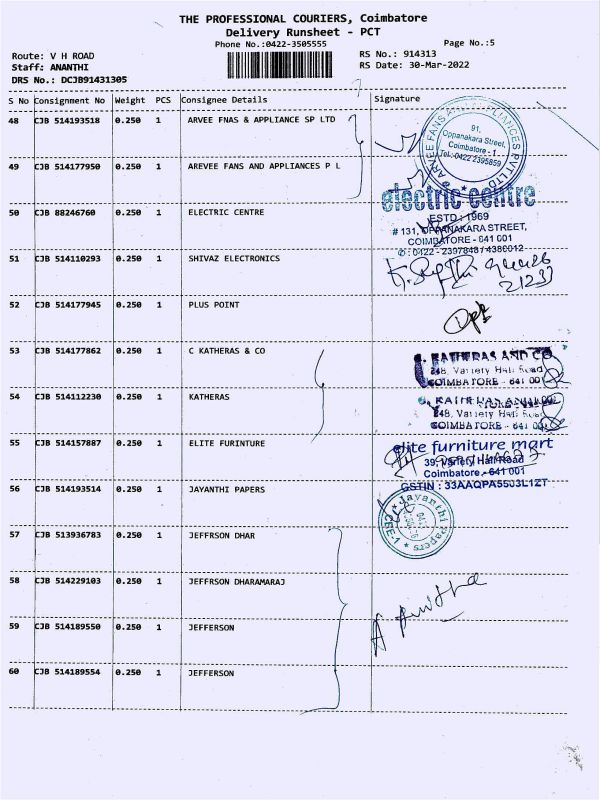 THE PROFESSIONAL COURIERS, Coimbatore
Delivery Runsheet - PCT
Phone No.:0422-3505555
Page No.:5
Route: V H ROAD
RS No.: 914313
Staff: ANANTHI
RS Date: 30-Mar-2022
DRS No.: DCJB91431305
S No Consignment No Weight PCS Consignee Details Signature
48 CJB 514193518 0.250 1 ARVEE FNAS & APPLIANCE SP LTD
ARVEE FANS AND APPLIANCES PVT LTD
91,
Oppanakara Street,
Coimbatore - 1
Tel: 0422 2395859
49 CJB 514177950 0.250 1 AREVEE FANS AND APPLIANCES P L
electric centre
50 CJB 88246760 0.250 1 ELECTRIC CENTRE
ESTD : 1969
# 131, OPPANAKARA STREET,
COIMBATORE - 641 001
✆ : 0422 - 2397848 / 4380012
51 CJB 514110293 0.250 1 SHIVAZ ELECTRONICS
21233
52 CJB 514177945 0.250 1 PLUS POINT
53 CJB 514177862 0.250 1 C KATHERAS & CO
KATHERAS AND CO
248, Variety Hall Road
COIMBATORE - 641 00
54 CJB 514112230 0.250 1 KATHERAS
248, Variety Hall Road
COIMBATORE - 641 00
55 CJB 514157887 0.250 1 ELITE FURINTURE
elite furniture mart
39, Variety Hall Road
Coimbatore - 641 001
GSTIN : 33AAQPA5503L1ZT
56 CJB 514193514 0.250 1 JAYANTHI PAPERS
Jayanthi Papers
CBE-1
57 CJB 513936783 0.250 1 JEFFRSON DHAR
58 CJB 514229103 0.250 1 JEFFRSON DHARAMARAJ
59 CJB 514189550 0.250 1 JEFFERSON
60 CJB 514189554 0.250 1 JEFFERSON